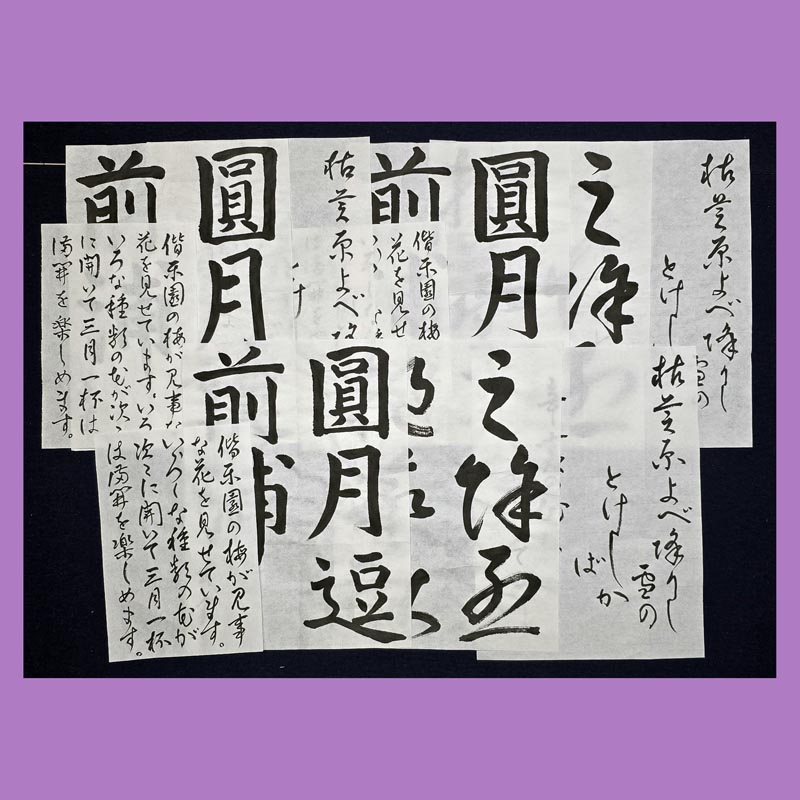 枯芝原よべ降りし
雪の
とけし
之
圓月
前
偕楽園の梅
花を見せ
枯芝原よべ
圓月
前
偕楽園の梅が見事な
花を見せています。いろ
いろな種類の花が次々
に開いて三月一杯は
満開を楽しめます。
枯芝原よべ降りし
雪の
とけしか
ば
之
圓月逗
前浦
偕楽園の梅が見事
な花を見せています。
いろいろな種類の花が
次々に開いて三月一杯
は満開を楽しめます。